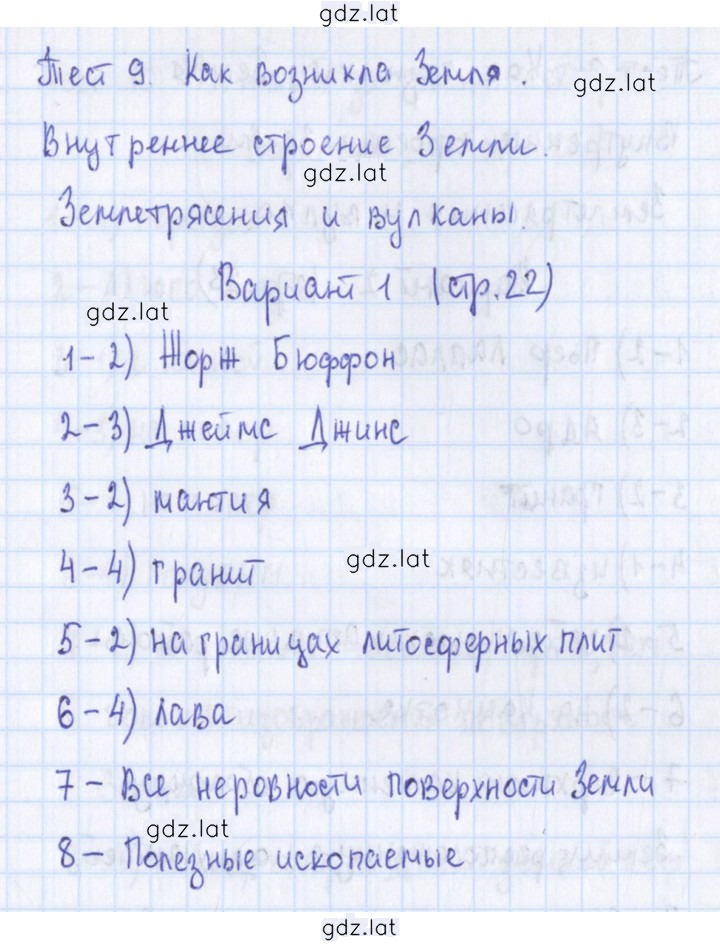 gdz.lat
Тест 9. Как возникла Земля.
gdz.lat
Внутреннее строение Земли.
gdz.lat
Землетрясения и вулканы.
Вариант 1 (стр.22)
gdz.lat
1-2) Жорж Бюффон
2-3) Джеймс Джинс
3-2) мантия
4-4) гранит
gdz.lat
5-2) на границах литосферных плит
6-4) лава
7- Все неровности поверхности Земли
gdz.lat
8- Полезные ископаемые
gdz.lat